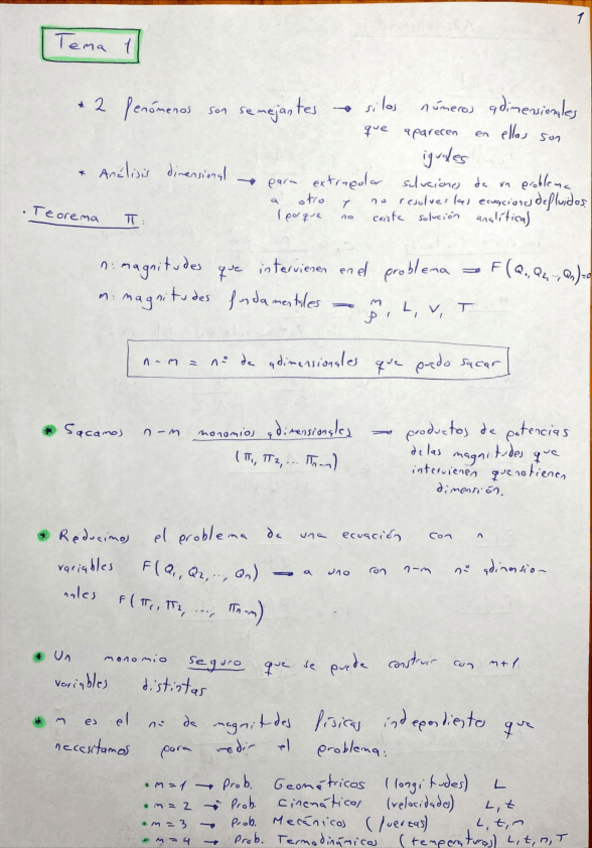 1
Tema 1
* 2 fenómenos son semejantes → si los números adimensionales
que aparecen en ellos son
iguales
* Análisis dimensional → para extrapolar soluciones de un problema
a otro y no resolver las ecuaciones de fluidos
(porque no existe solución analítica)
· Teorema π:
n: magnitudes que intervienen en el problema ⇒ F(Q₁, Q₂, .., Qn)=0
m: magnitudes fundamentales — m, L, V, T
ρ
n - m = nº de adimensionales que puedo sacar
* Sacamos n-m monomios adimensionales — productos de potencias
(π₁, π₂, ... πn-m) de las magnitudes que
intervienen que no tienen
dimensión.
* Reducimos el problema de una ecuación con n
variables F(Q₁, Q₂, .., Qn) — a uno con n-m nº adimensio-
nales F(π₁, π₂, ..., πn-m)
* Un monomio seguro que se puede construir con m+1
variables distintas
* m es el nº de magnitudes físicas independientes que
necesitamos para medir el problema:
• m = 1 → Prob. Geométricos (longitudes) L
• m = 2 → Prob. Cinemáticos (velocidades) L, t
• m = 3 → Prob. Mecánicos (fuerzas) L, t, m
• m = 4 → Prob. Termodinámicos (temperaturas) L, t, m, T